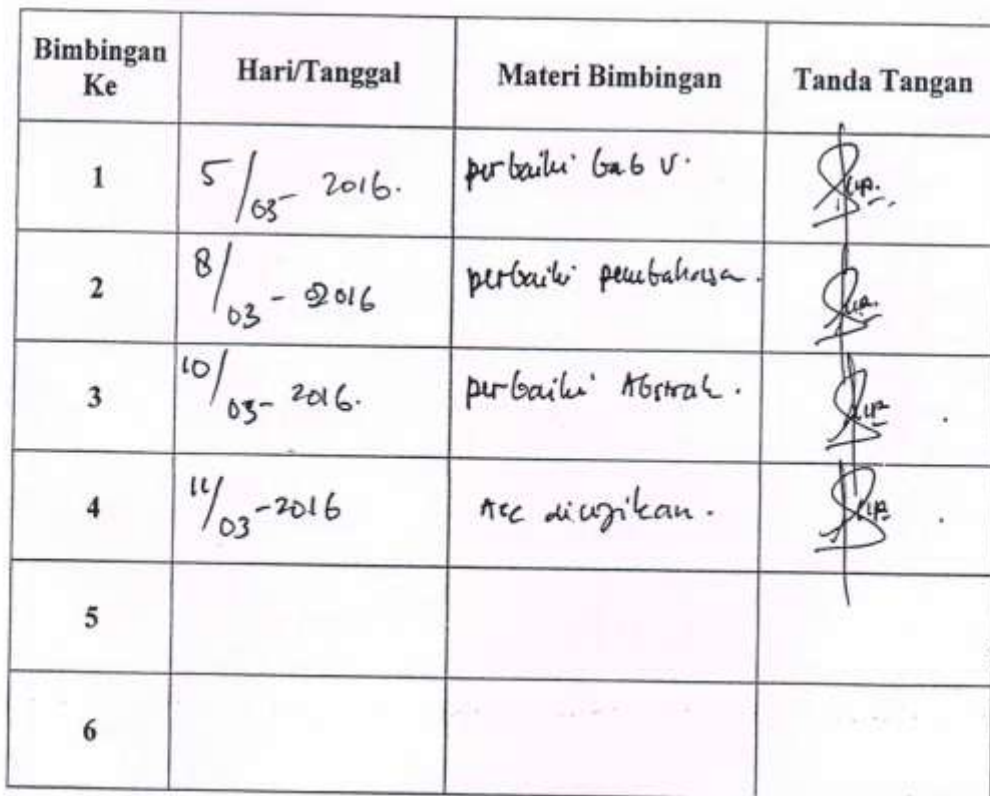 Bimbingan Ke Hari/Tanggal Materi Bimbingan Tanda Tangan
1 5/03- 2016. perbaiki bab V.
2 8/03 - 2016 perbaiki pembahasa.
3 10/03- 2016. perbaiki Abstrak.
4 11/03-2016 Acc diujikan.
5
6